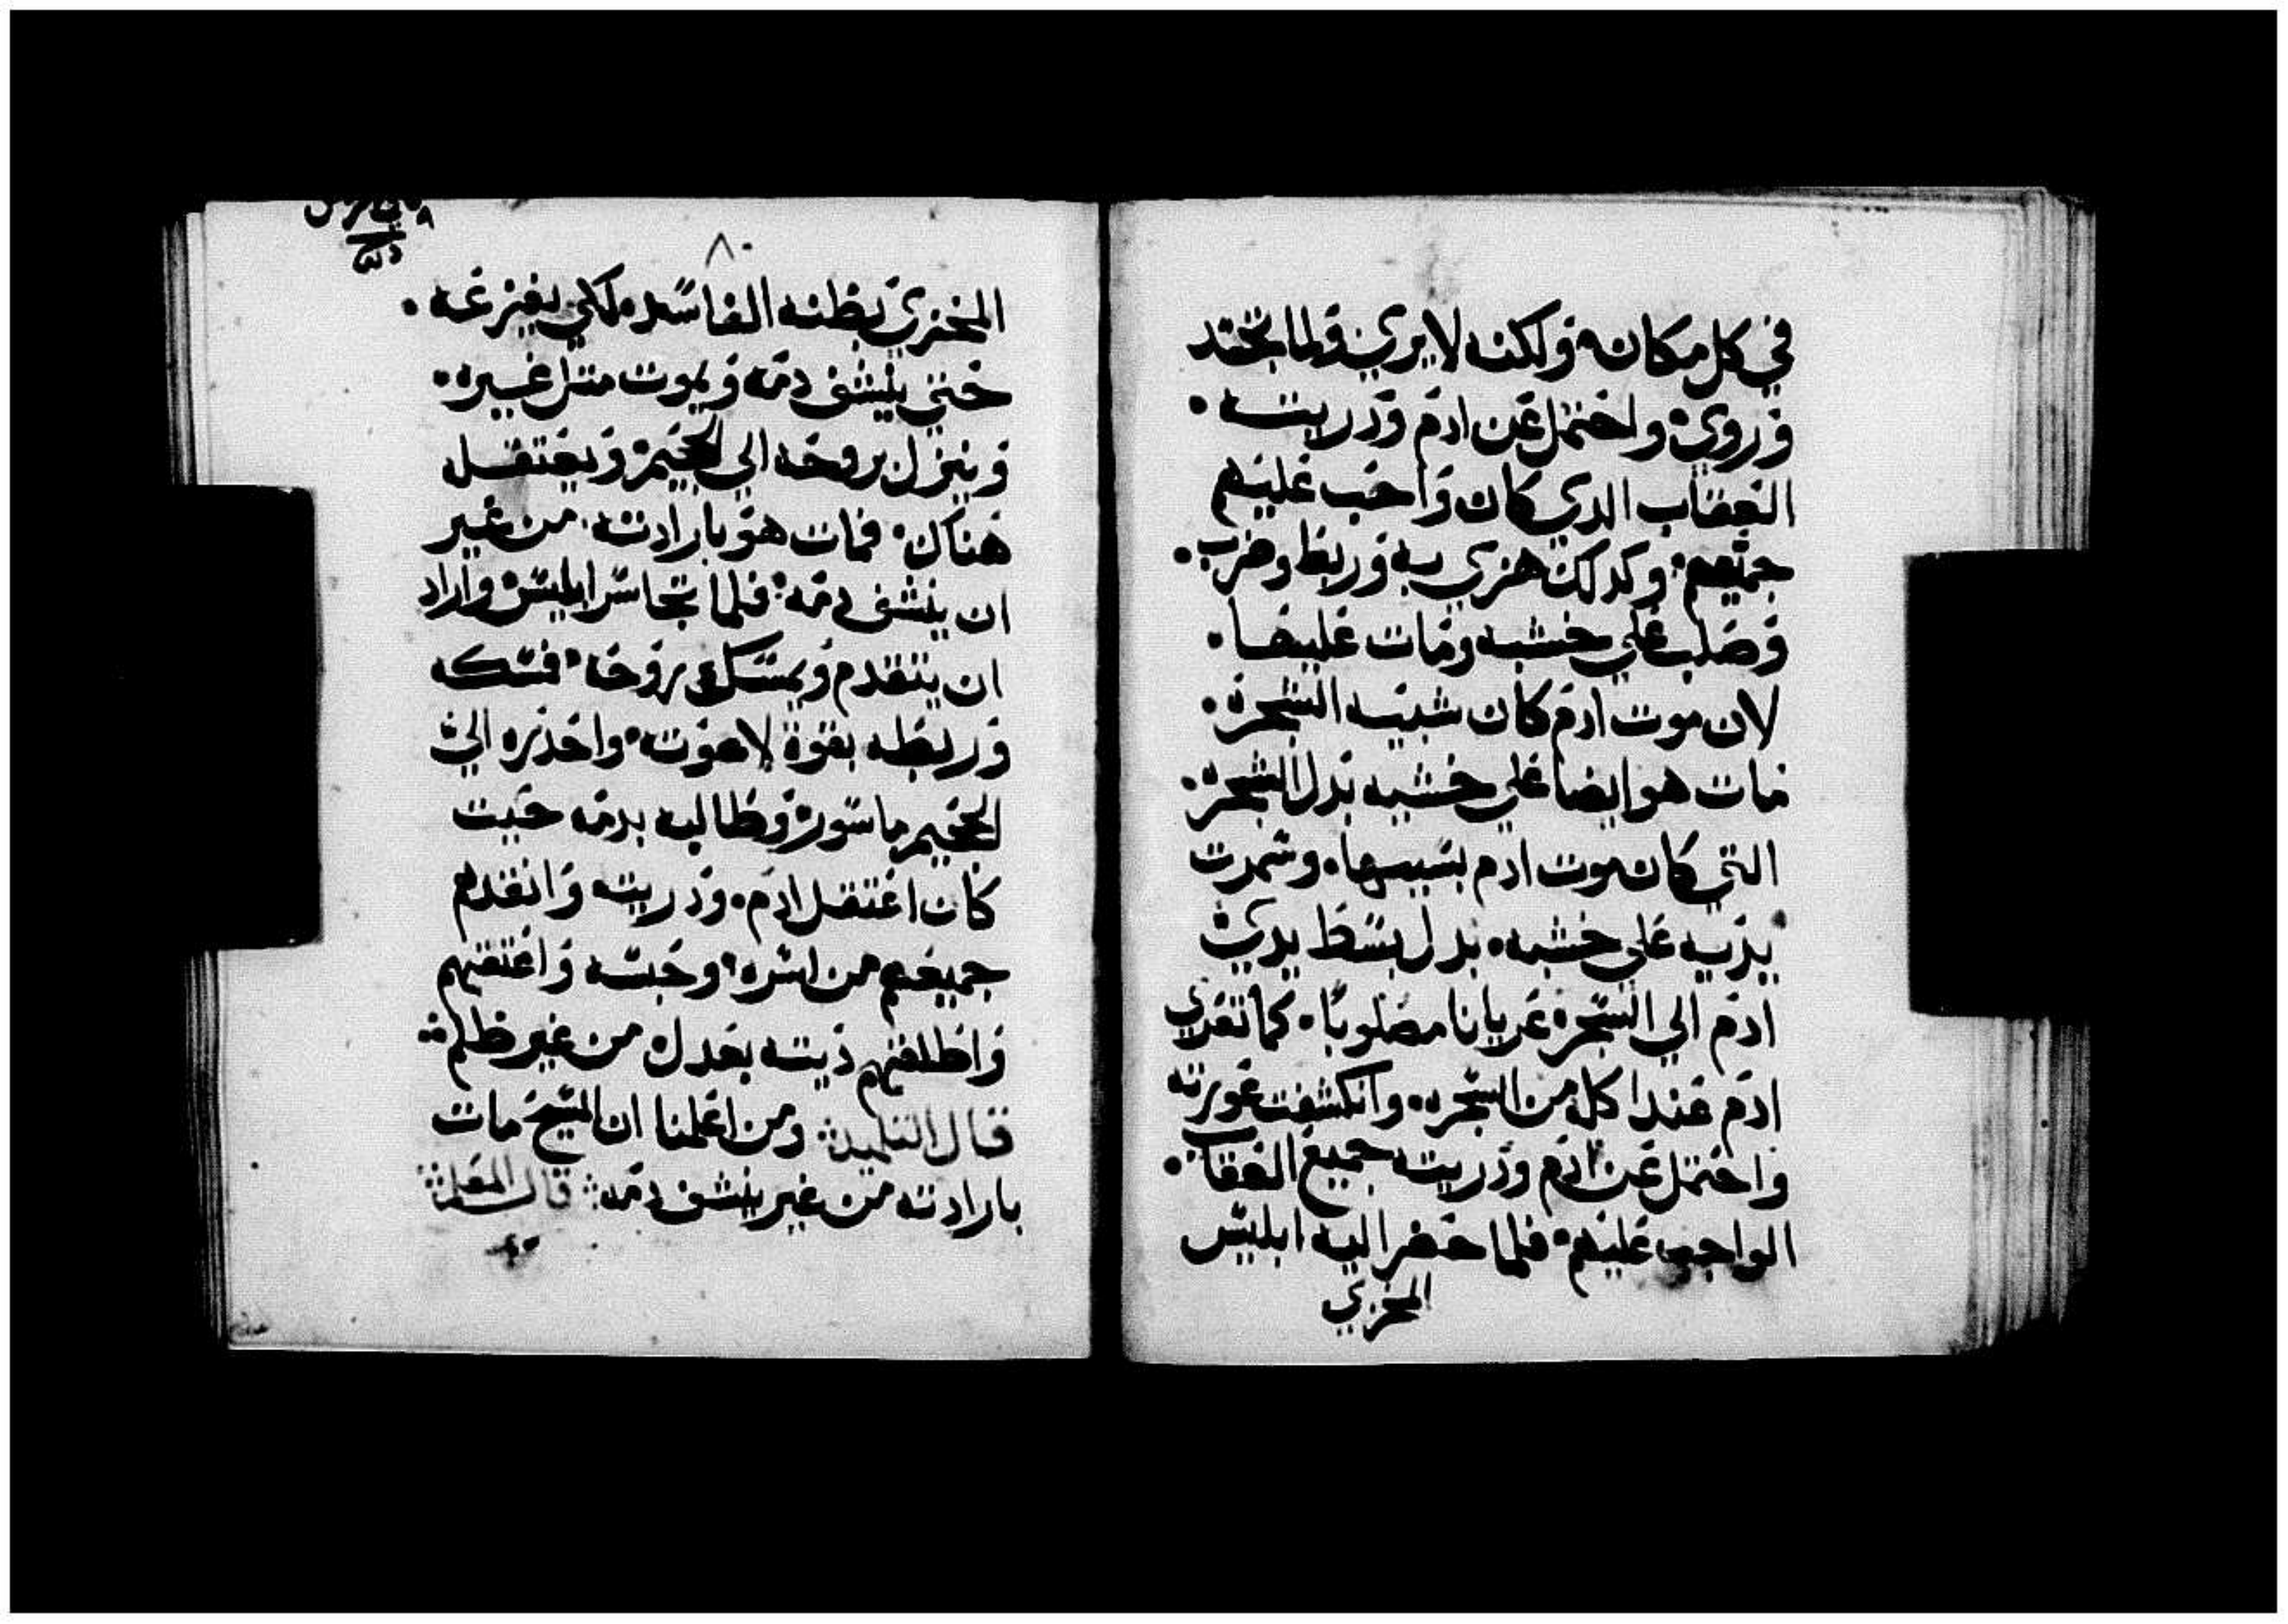 في كل مكان، ولكنه لا يري ولما تجسد
وروي، واحتمل عن ادم ودريته.
العقاب الدي كان واجب عليهم
جميعهم. وكدلك هزي به وربط وضرب.
وصلب علي خشبه ومات عليها.
لان موت ادم كان شبيه الشجرة.
مات هو ايضا علي خشبه بدل الشجرة.
التي كان موت ادم بسببها. وسمرت
يديه علي خشبه. بدل بسط يدي
ادم الي الشجره عريانا مصلوبا. كما تعري
ادم عند اكله من الشجره. وانكشفت عورته
واحتمل عن ادم ودريته جميع العقاب.
الواجب عليهم. فلما حضر اليه ابليس
المخزي
٨٠
المخزي بظنه الفاسد. لكي يفزعه.
حتي ينشف دمه ويموت متل غيره.
وينزل بروحه الي الجحيم ويعتقل
هناك. فمات هو بارادته. من غير
ان ينشف دمه. فلما تجاسر ابليس واراد
ان يتقدم ويمسك روحه. فمسكه
وربطه بقوة لاهوته. واحدره الي
الجحيم ماسور وطالبه بدمه حيت
كان اعتقل ادم. ودريته وانقدهم
جميعهم من اسره. وحبسه واعتقهم
واطلقهم ديته بعدل من غير ظلم
قال التلميد ومن اعلمنا ان المسيح مات
بارادته من غير ينشف دمه. قال المعلم